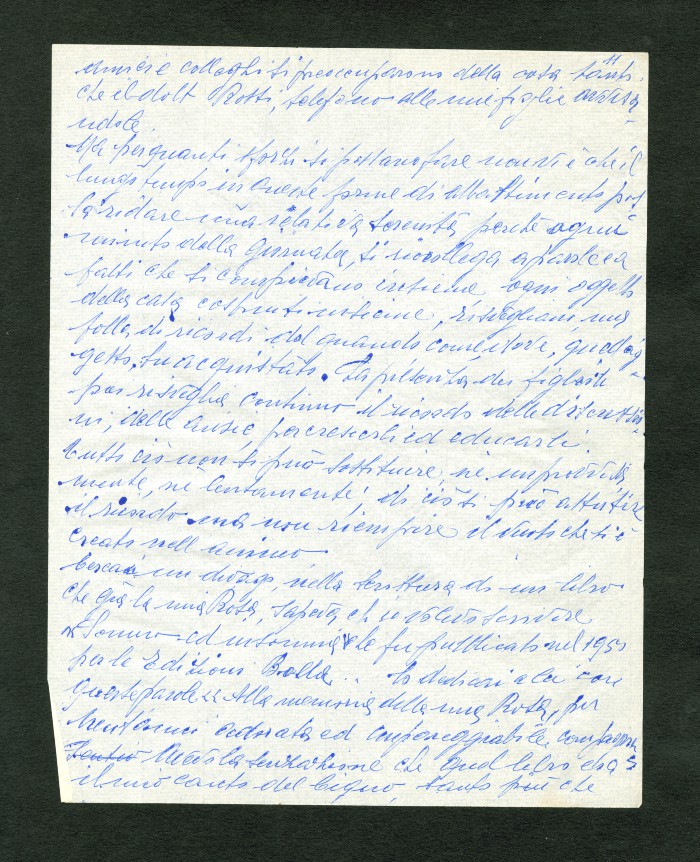 amici e colleghi si preoccuparono della cosa tanti.
che il dott Rossi, telefono alle mie figlie avvisa-
ndole.
Ma per quanti sforzi si possano fare non vi è che il
lungo tempo in queste forme di abbattimento pos
sa ridare una relativa serenità perchè ogni
minuto della giornata, si ricollega a parole e a
fatti che si compivano insieme ogni oggetto
della casa, risvegliano una
folla di ricordi del quando come e dove, quell'og-
getto, fu acquistato. La presenza dei figli
poi risveglia continuo il ricordo delle
ni, delle ansie per crescerli ed educarli.
Tutto ciò non si può sostituire nè improvvisa
mente, nè lentamente: di ciò si può attutire
il ricordo ma non riempire il vuoto che si è
creato nell'animo
Cercai un divago, nella scrittura di un libro
che già la mia Rosa, sapeva che volevo scrivere
"Sonno ed insonnia" che fu pubblicato nel 1951
per le Edizioni Bolla .. lo dedicai a lei con
queste parole << Alla memoria della mia Rosa, per
trent'anni adorata ed impareggiabile compagna >>
la sensazione che quel libro era
il mio canto del cigno, tanto più che